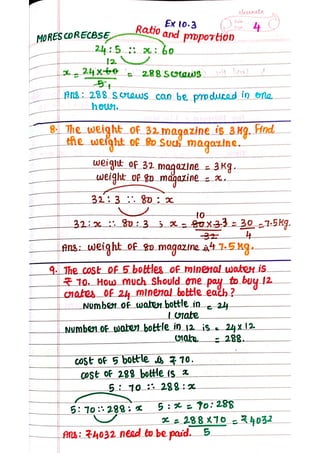 classmate
4
Ex 10.3
Ratio and proportion
MORESCORECBSE
24:5 :: x : 60
12
x = 24x60 = 288 screws
5 1
Ans: 288 screws can be produced in one
hour.
8. The weight of 32 magazine is 3 Kg. Find
the weight of 80 such magazine.
weight of 32 magazine = 3 Kg.
weight of 80 magazine = x.
32:3 :: 80 : x
10
32:x :: 80:3 ; x = 80x3 = 30 = 7.5Kg.
32 4
Ans: weight of 80 magazine is 7.5 Kg.
9. The cost of 5 bottles of mineral water is
₹ 70. How much should one pay to buy 12
crates of 24 mineral bottle each?
Number of water bottle in = 24
1 crate
Number of water bottle in 12 is = 24x12
crate = 288.
cost of 5 bottle is ₹ 70.
cost of 288 bottle is x
5 : 70 :: 288 : x
5:70 :: 288 : x 5:x = 70:288
x = 288 x70 = ₹4032
5
Ans: ₹4032 need to be paid.